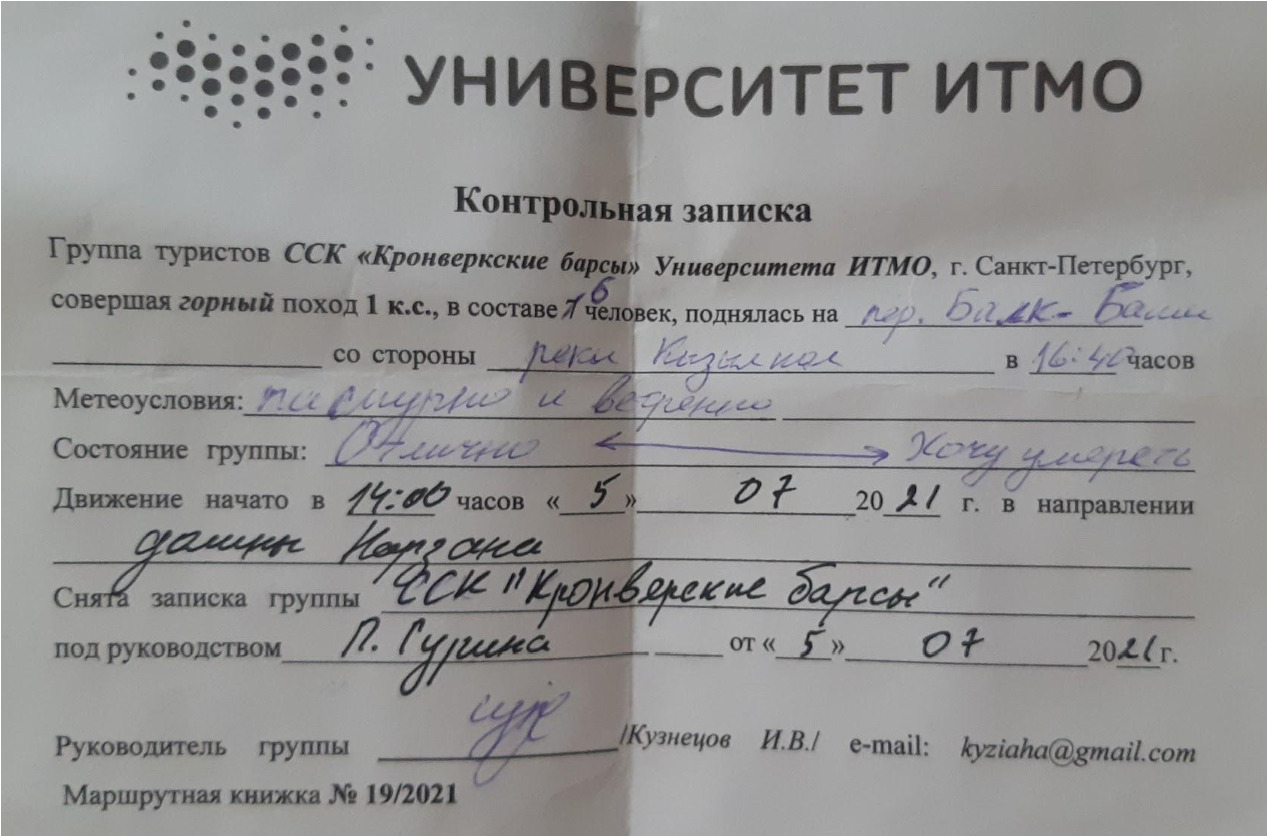 УНИВЕРСИТЕТ ИТМО
Контрольная записка
Группа туристов ССК «Кронверкские барсы» Университета ИТМО, г. Санкт-Петербург,
совершая горный поход 1 к.с., в составе 6 человек, поднялась на пер. Балк-Баши
со стороны реки Кизилкол в 16:40 часов
Метеоусловия: пасмурно и ветренно
Состояние группы: Отлично ↔ Хочу умереть
Движение начато в 14:00 часов «5» 07 2021 г. в направлении
долины Нарзана
Снята записка группы ССК "Кронверские барсы"
под руководством П. Гурина от «5» 07 2021г.
Руководитель группы /Кузнецов И.В./ e-mail: kyziaha@gmail.com
Маршрутная книжка № 19/2021